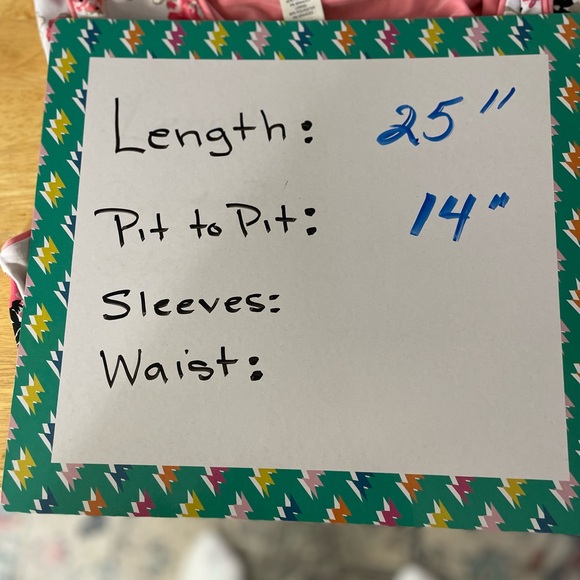 Length: 25"
Pit to Pit: 14"
Sleeves:
Waist: